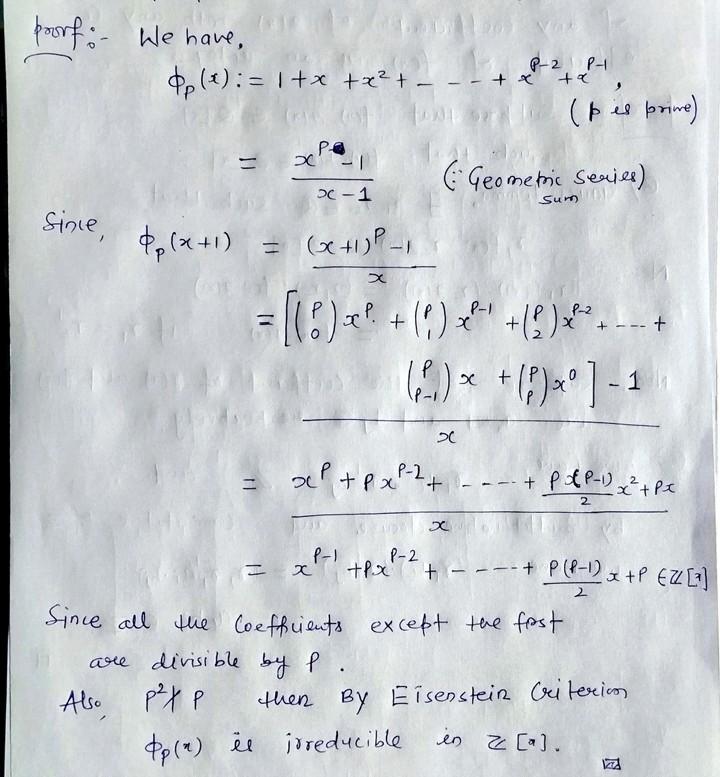 proof:- We have,
ϕₚ(x) := 1 + x + x² + - - - - + x^{P-2} + x^{P-1},
(p is prime)
= \frac{x^{P} - 1}{x - 1} (∵ Geometric series)
sum
Since, ϕₚ(x+1) = \frac{(x+1)^P - 1}{x}
= [\binom{P}{0} x^P. + \binom{P}{1} x^{P-1} + \binom{P}{2} x^{P-2} + - - - - +
\frac{\binom{P}{P-1} x + \binom{P}{P} x^0 ] - 1}{x}
= \frac{x^P + P x^{P-2} + - - - - - + \frac{P x(P-1)}{2} x^2 + Px}{x}
= x^{P-1} + Px^{P-2} + - - - - - + \frac{P(P-1)}{2} x + P ∈ ℤ[x]
Since all the Coefficients except the first
are divisible by P.
Also, P² ∤ P then By Eisenstein Criterion
ϕₚ(x) is irreducible in ℤ[x].